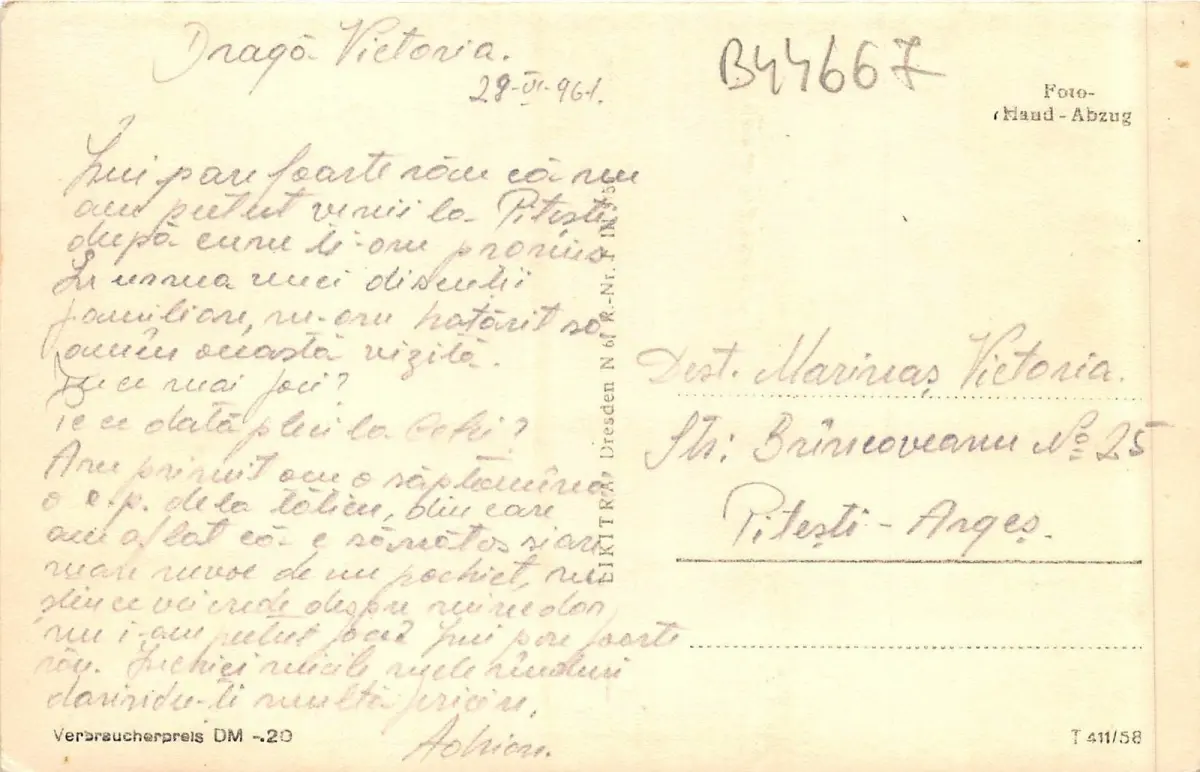 Dragă Victoria.
28-VI-961.
Îmi pare foarte rău că nu
am putut venii la Pitești
după cum ți-am promis
În urma unei discuții
familiare, m-am hotărît să
amîn această vizită.
Tu ce mai faci?
Pe ce dată pleci la
Am primit am o săptămîna
o c.p. de la tăticu, din care
am aflat că e sănătos și are
mare nevoe de un pachet, nu
știu ce va crede despre mine dar
nu i-am putut face? Îmi pare foarte
rău. Închei micile mele rînduri
dorindu-ți multă fericire,
Adrian.
B44667
Foto-
Hand-Abzug
Dest. Marineaș Victoria.
Str: Brîncoveanu No 25
Pitești - Argeș.
EIKITRA, Dresden N 6, R.-Nr.
Verbraucherpreis DM -.20
T 411/58